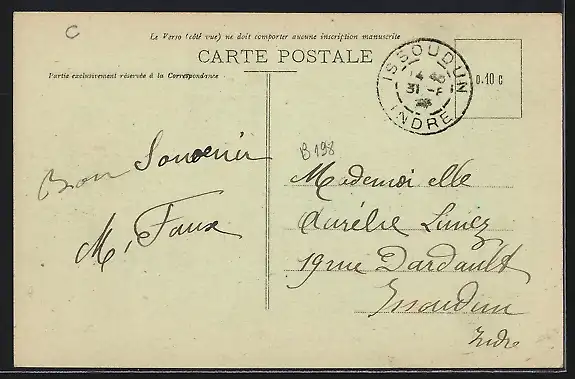 C
Le Verso (côté vue) ne doit comporter aucune inscription manuscrite
CARTE POSTALE
Partie exclusivement réservée à la Correspondance
ISSOUDUN
31
INDRE
0.10 c
B198
Bon Souvenir
M, Faux
Mademoiselle
Aurélie Limez
19 rue Dardault
Issoudun
Indre